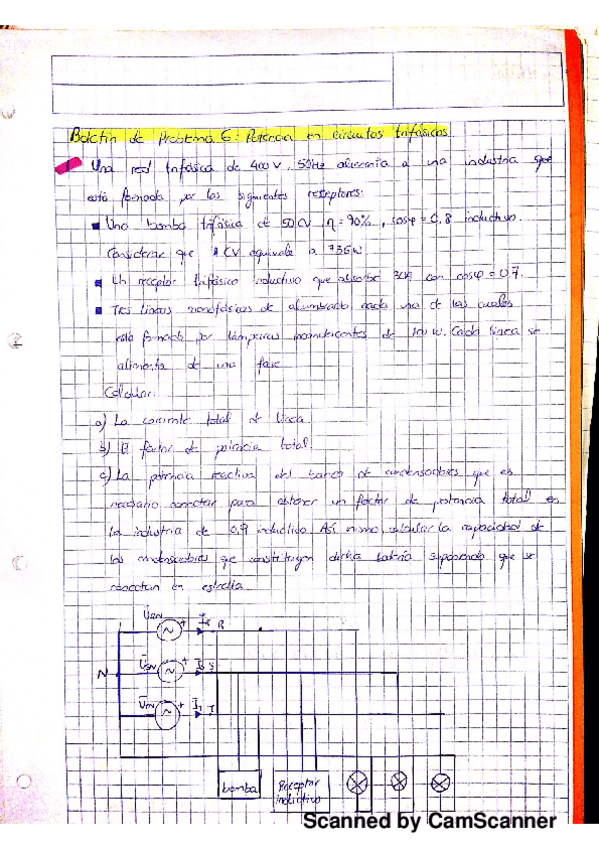 Boletín de Problema 6: Potencia en circuitos trifásicos
1 Una red trifásica de 400 V, 50Hz alimenta a una industria que
está formada por los siguientes receptores:
Una bomba trifásica de 50 CV, η = 90%, cosφ = 0,8 inductivo.
Considerar que 1 CV equivale a 736W
Un receptor trifásico inductivo que absorbe con cosφ = 0,7.
Tres líneas monofásicas de alumbrado cada una de las cuales
está formada por lámparas incandescentes de W. Cada línea se
alimenta de una fase
Calcular:
a) La corriente total de línea.
b) El factor de potencia total.
c) La potencia reactiva del banco de condensadores que es
necesario conectar para obtener un factor de potencia total en
la industria de 0,9 inductivo. Así mismo, calcular la capacidad de
los condensadores que constituyen dicha batería suponiendo que se
conectan en estrella
URN + IR R
N USN + IS S
UTN + IT T
bomba
Receptor
inductivo
Scanned by CamScanner